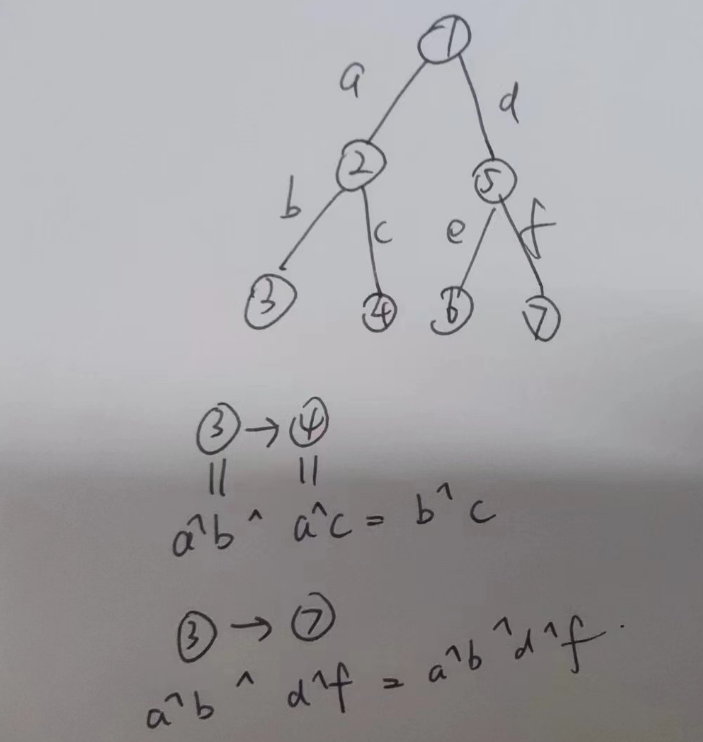 ①
a d
② ⑤
b c e f
③ ④ ⑥ ⑦
③ → ④
|| ||
a^b ^ a^c = b^c
③ → ⑦
a^b ^ d^f = a^b^d^f.